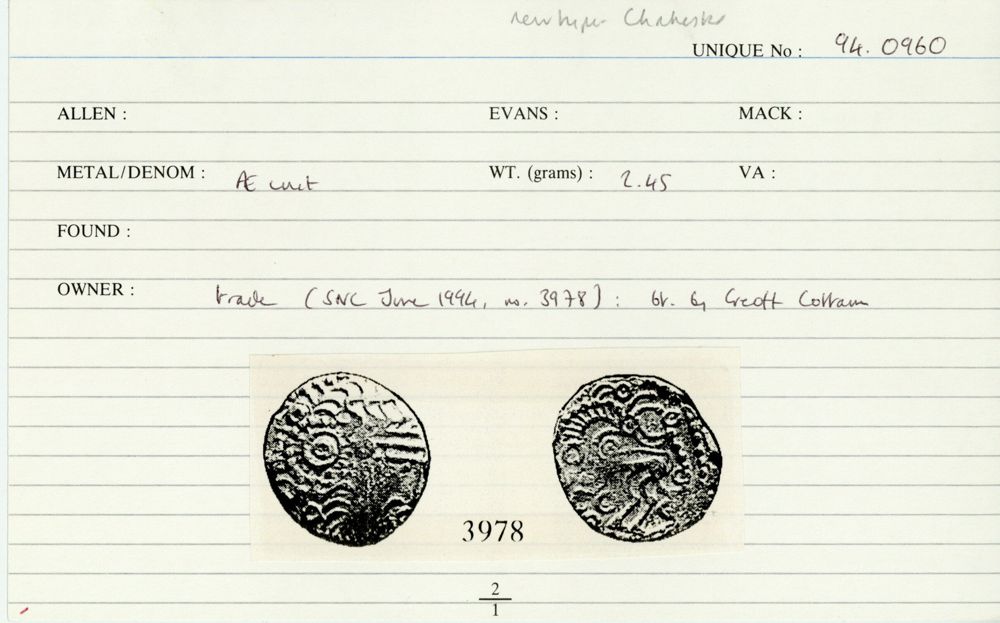 new type Chichester
UNIQUE No : 94. 0960
ALLEN : EVANS : MACK :
METAL/DENOM : Æ unit WT. (grams) : 2.45 VA :
FOUND :
OWNER : trade (SNC June 1994, no. 3978) : bt. by Geoff Cottam
3978
2
1